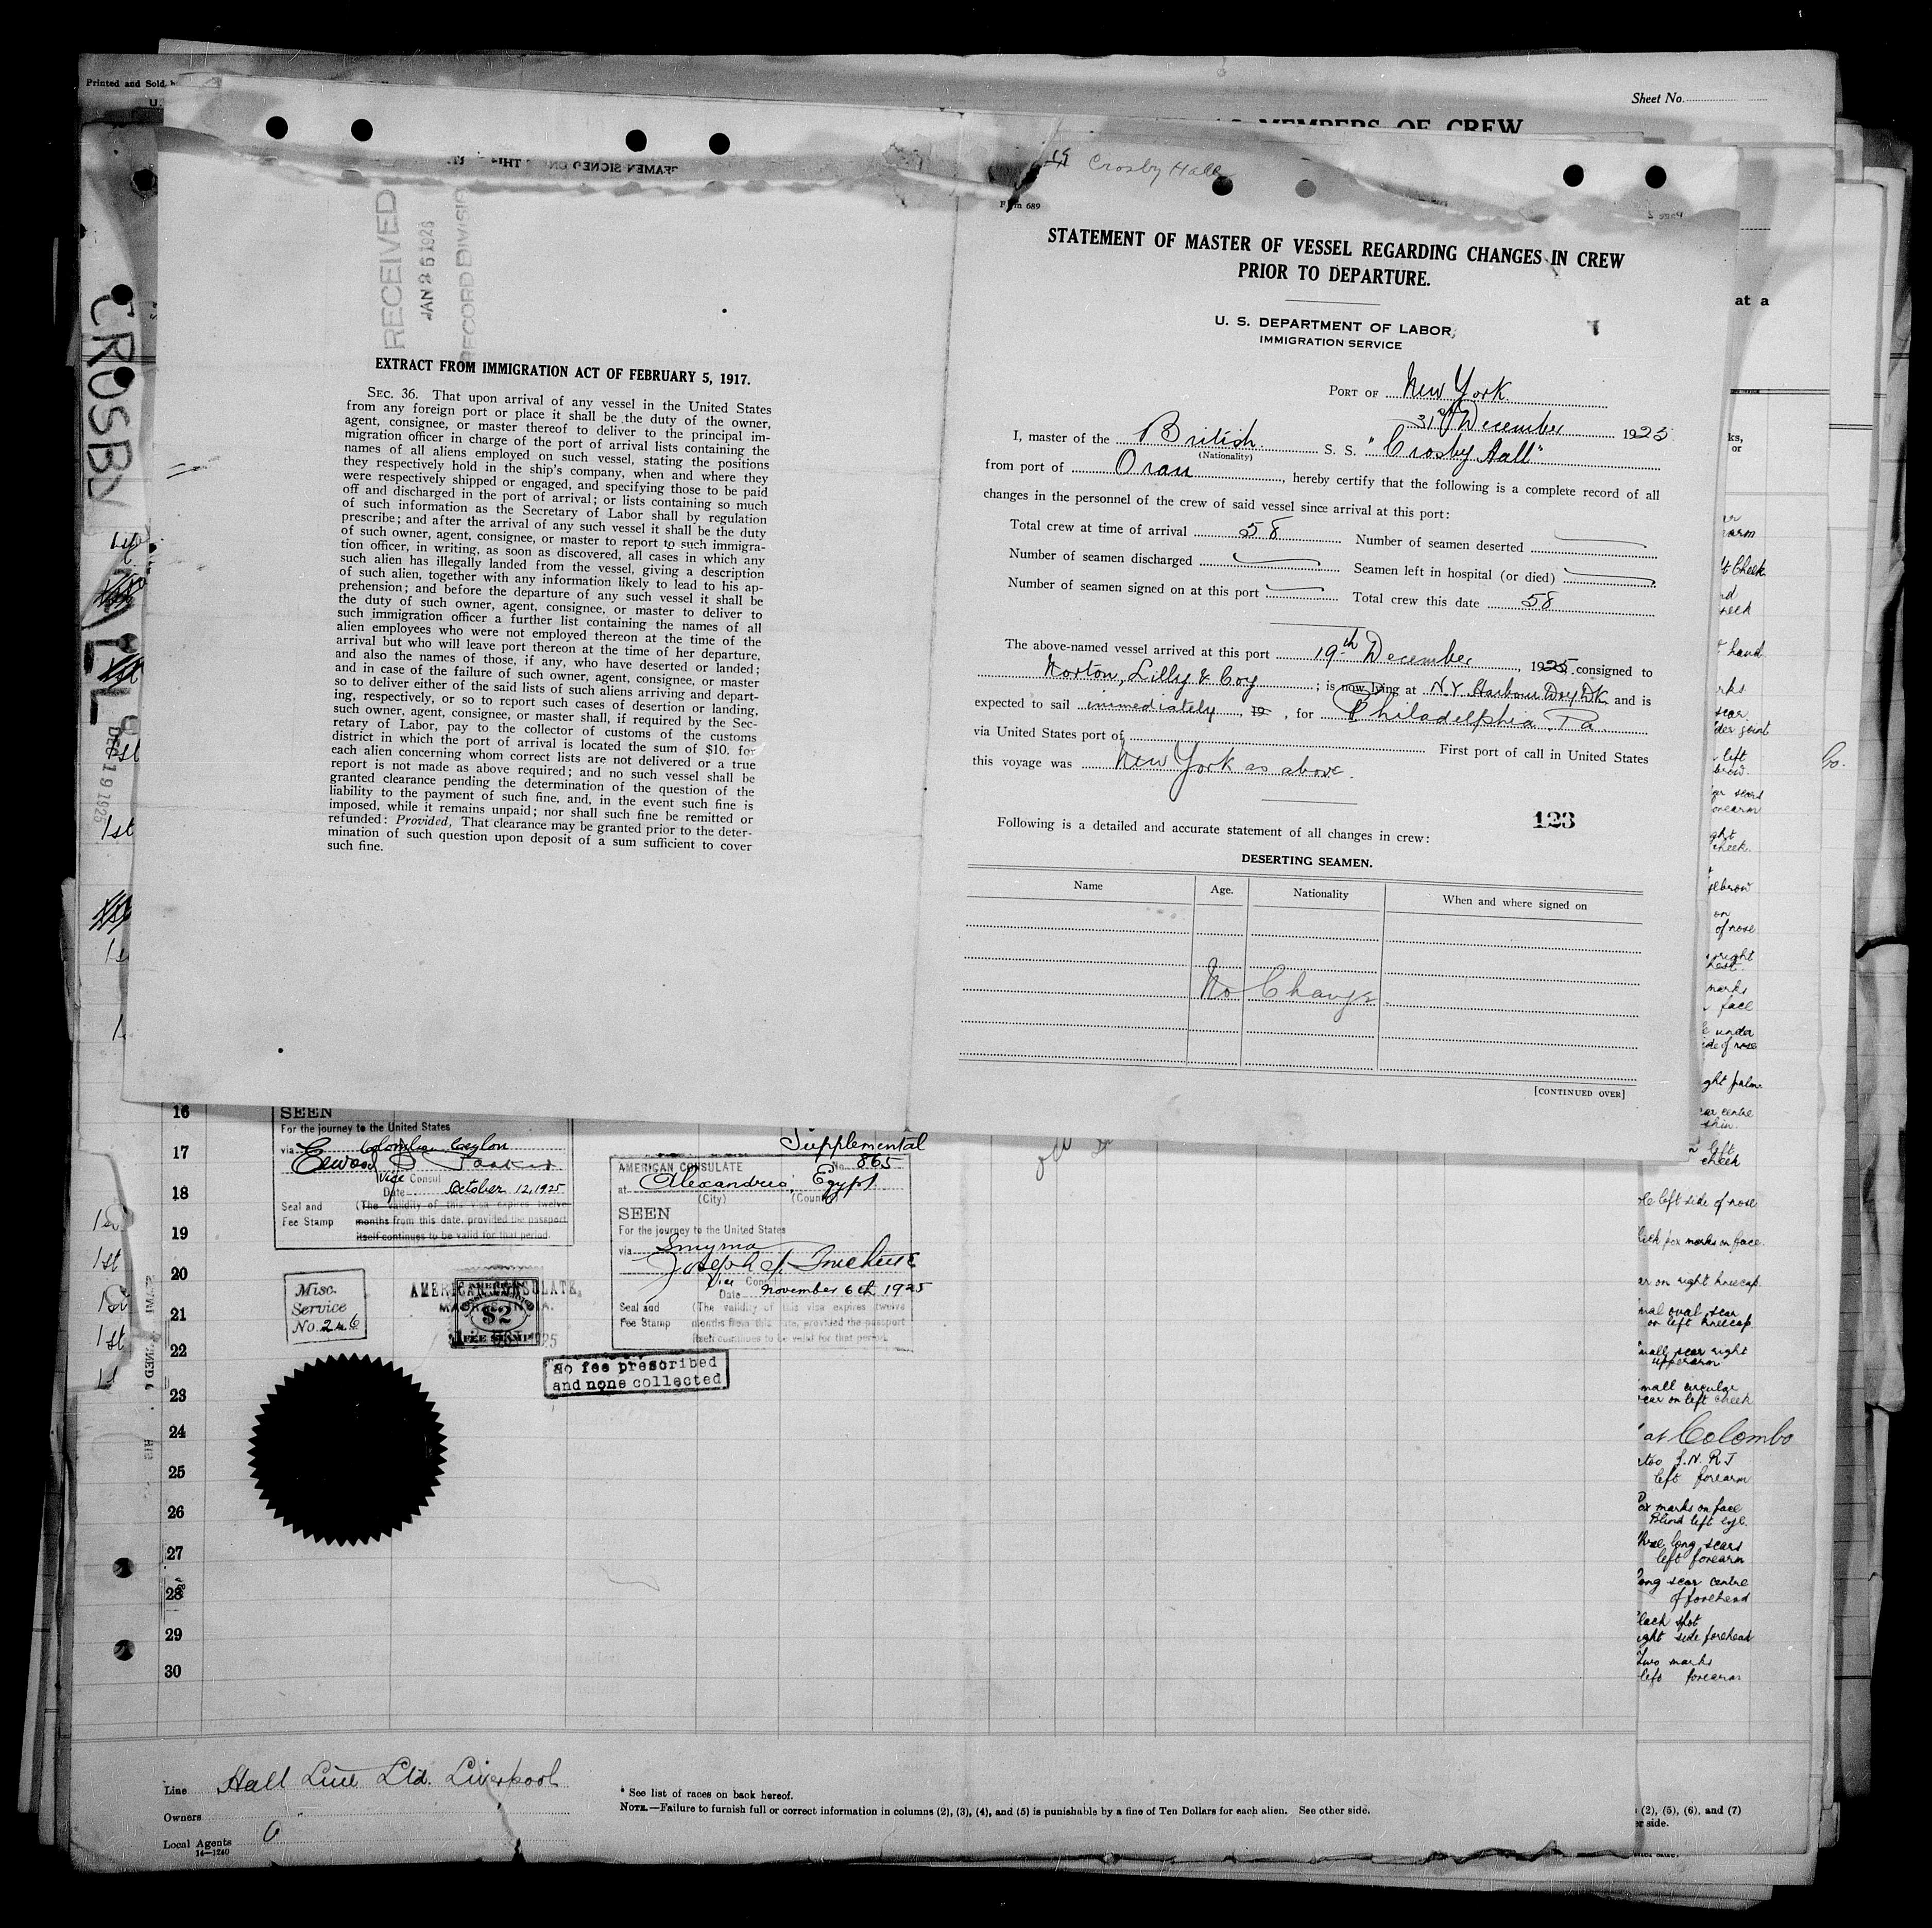 Printed and Sold b
U.
Sheet No.
MEMBERS OF CREW
at a
CROSBY HALL
DEC 19 1925
RECEIVED
JAN 2 6 1926
RECORD DIVISIO
EXTRACT FROM IMMIGRATION ACT OF FEBRUARY 5, 1917.
SEC. 36. That upon arrival of any vessel in the United States
from any foreign port or place it shall be the duty of the owner,
agent, consignee, or master thereof to deliver to the principal im-
migration officer in charge of the port of arrival lists containing the
names of all aliens employed on such vessel, stating the positions
they respectively hold in the ship's company, when and where they
were respectively shipped or engaged, and specifying those to be paid
off and discharged in the port of arrival; or lists containing so much
of such information as the Secretary of Labor shall by regulation
prescribe; and after the arrival of any such vessel it shall be the duty
of such owner, agent, consignee, or master to report to such immigra-
tion officer, in writing, as soon as discovered, all cases in which any
such alien has illegally landed from the vessel, giving a description
of such alien, together with any information likely to lead to his ap-
prehension; and before the departure of any such vessel it shall be
the duty of such owner, agent, consignee, or master to deliver to
such immigration officer a further list containing the names of all
alien employees who were not employed thereon at the time of the
arrival but who will leave port thereon at the time of her departure,
and also the names of those, if any, who have deserted or landed;
and in case of the failure of such owner, agent, consignee, or master
so to deliver either of the said lists of such aliens arriving and depart-
ing, respectively, or so to report such cases of desertion or landing,
such owner, agent, consignee, or master shall, if required by the Sec-
retary of Labor, pay to the collector of customs of the customs
district in which the port of arrival is located the sum of $10. for
each alien concerning whom correct lists are not delivered or a true
report is not made as above required; and no such vessel shall be
granted clearance pending the determination of the question of the
liability to the payment of such fine, and, in the event such fine is
imposed, while it remains unpaid; nor shall such fine be remitted or
refunded: Provided, That clearance may be granted prior to the deter-
mination of such question upon deposit of a sum sufficient to cover
such fine.
Crosby Hall
Form 689
STATEMENT OF MASTER OF VESSEL REGARDING CHANGES IN CREW
PRIOR TO DEPARTURE.
U. S. DEPARTMENT OF LABOR
IMMIGRATION SERVICE
PORT OF New York
31st December 1925
I, master of the British S. S. "Crosby Hall"
(Nationality)
from port of Oran, hereby certify that the following is a complete record of all
changes in the personnel of the crew of said vessel since arrival at this port:
Total crew at time of arrival 58 Number of seamen deserted
Number of seamen discharged Seamen left in hospital (or died)
Number of seamen signed on at this port Total crew this date 58
The above-named vessel arrived at this port 19th December, 1925, consigned to
Norton, Lilly & Coy; is now lying at N.Y Harbour Dry Dk and is
expected to sail immediately, 19 , for Philadelphia Pa.
via United States port of First port of call in United States
this voyage was New York as above.
123
Following is a detailed and accurate statement of all changes in crew:
DESERTING SEAMEN.
Name Age. Nationality When and where signed on
No Change
[CONTINUED OVER]
16
17
18
19
20
21
22
23
24
25
26
27
28
29
30
SEEN
For the journey to the United States
via Colombo Ceylon
Vice Consul
Date October 12, 1925
Seal and (The validity of this visa expires twelve
Fee Stamp months from this date, provided the passport
itself continues to be valid for that period.
Misc.
Service
No. 246
AMERICAN CONSULATE,
$2
FEE STAMP
Supplemental
AMERICAN CONSULATE No. 865
at Alexandria, Egypt
(City) (Country)
SEEN
For the journey to the United States
via Smyrna
Vice Consul
Date November 6th 1925
Seal and (The validity of this visa expires twelve
Fee Stamp months from this date, provided the passport
itself continues to be valid for that period.
No fee prescribed
and none collected
left side of nose
marks on face.
on right kneecap
oval scar
on left kneecap
scar right
upperarm
circular
on left cheek
at Colombo
left forearm
marks on face
Blind left eye.
long scars
left forearm
scar centre
of forehead
spot
side forehead
Two marks
left forearm
Line Hall Line Ltd. Liverpool
Owners
Local Agents
14—1240
* See list of races on back hereof.
NOTE.—Failure to furnish full or correct information in columns (2), (3), (4), and (5) is punishable by a fine of Ten Dollars for each alien. See other side.
(2), (5), (6), and (7)
side.